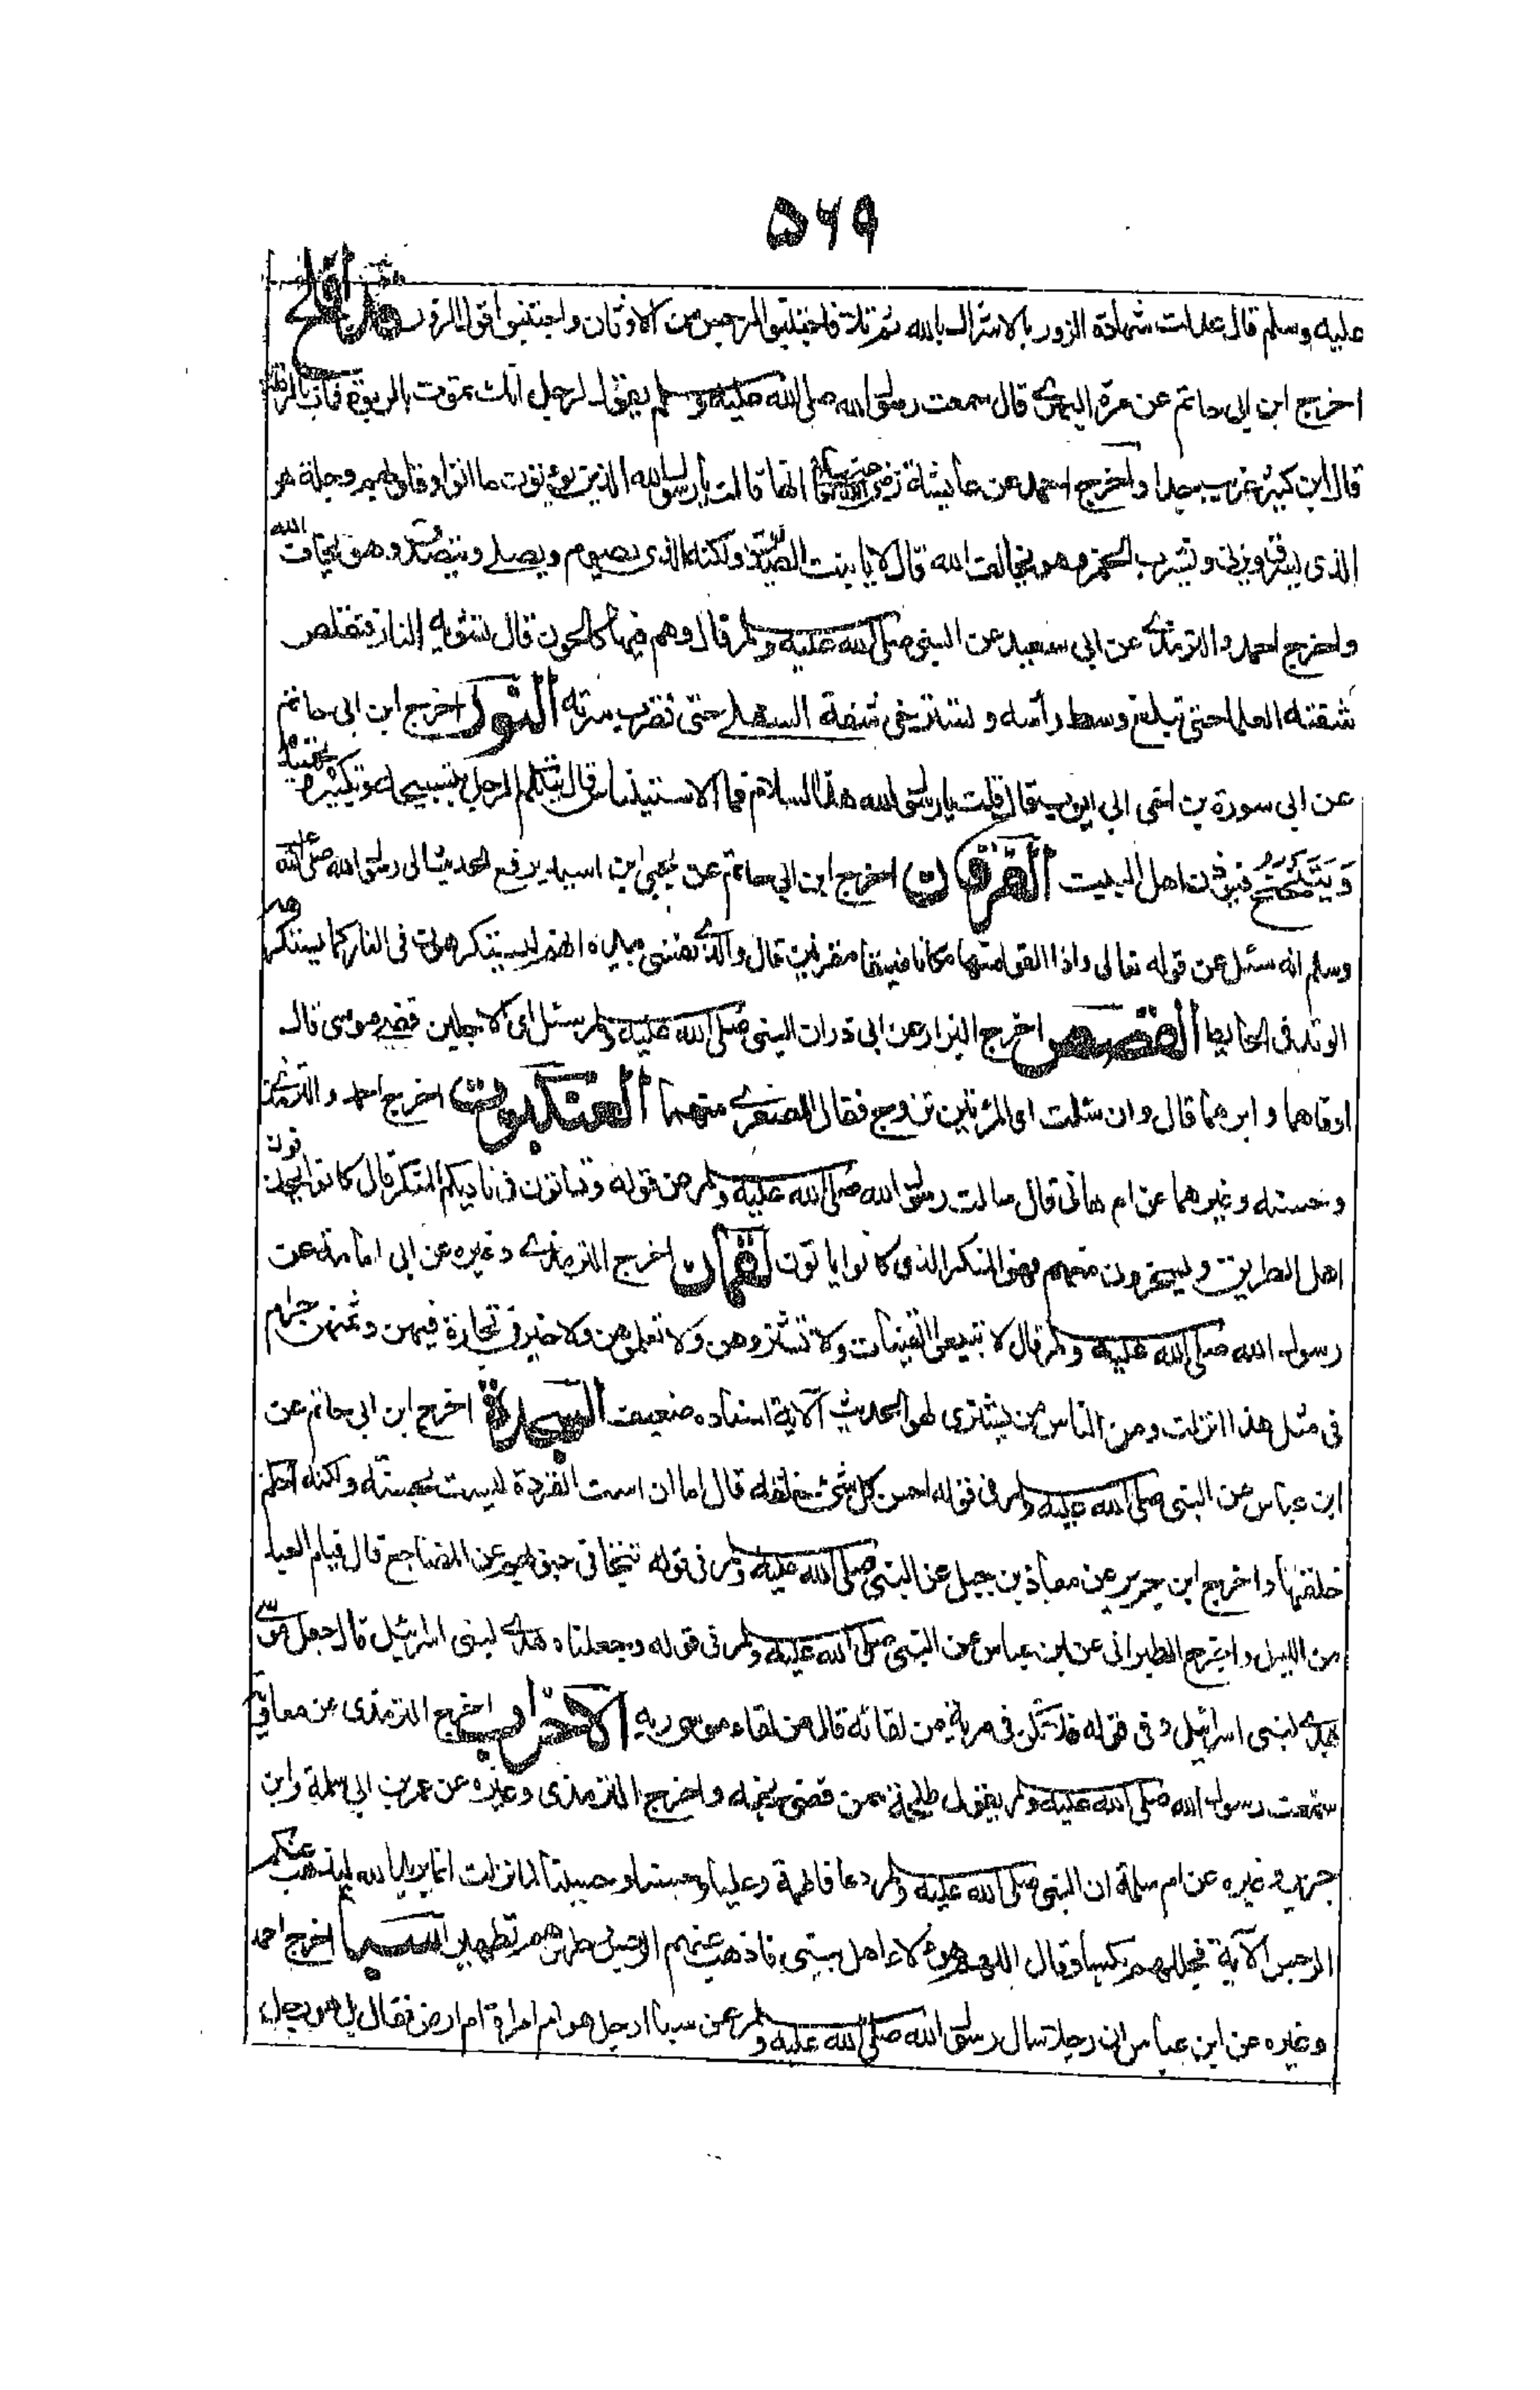 ۵۶۹
عليه وسلم قال عدلت شهادة الزور بالاشراك بالله ثم تلا فاجتنبوا الرجس من الاوثان واجتنبوا قول الزور قد افلح
اخرج ابن ابى حاتم عن مرة البهزى قال سمعت رسول الله صلى الله عليه وسلم يقول لرجل انك تموت بالربوة فمات بالرملة
قال ابن كثير غريب جدا واخرج احمد عن عايشة رضى الله عنها انها قالت يا رسول الله الذين يؤتون ما اتوا وقلوبهم وجلة هو
الذى يسرق ويزنى ويشرب الخمر وهو يخاف الله قال لا يا بنت الصديق ولكنه الذى يصوم ويصلى ويتصدق وهو يخاف الله
واخرج احمد والترمذى عن ابى سعيد عن النبى صلى الله عليه وسلم قال وهم فيها كالحون قال تشويه النار فتقلص
شفته العليا حتى تبلغ وسط رأسه وتسترخى شفة السفلى حتى تضرب سرته النور اخرج ابن ابى حاتم
عن ابى سورة بن اخى ابى ايوب قال قلت يا رسول الله هذا السلام فما الاستيناس قال يتكلم الرجل بتسبيحة وتكبيرة وتحميدة
وَيَتَنَحْنَحُ فيؤذن اهل البيت الفرقان اخرج ابن ابى حاتم عن يحيى ابن اسيد يرفع الحديث الى رسول الله صلى الله عليه
وسلم انه سئل عن قوله تعالى واذا القوا منها مكانا ضيقا مقرنين قال والذى نفسى بيده انهم ليستكرهون فى النار كما يستكره
الوتد فى الحايط القصص اخرج البزار عن ابى ذر ان النبى صلى الله عليه وسلم سئل اى الاجلين قضى موسى قال
اوفاهما وابرهما قال وان سئلت اى المرئتين تزوج فقال الصغرى منهما العنكبوت اخرج احمد والترمذى
وحسنه وغيرهما عن ام هانى قال سالت رسول الله صلى الله عليه وسلم عن قوله وتاتون فى ناديكم المنكر قال كانوا يجلسون
اهل الطريق ويسخرون منهم فهو المنكر الذى كانوا ياتون لقمان اخرج الترمذى وغيره عن ابى امامة عن
رسول الله صلى الله عليه وسلم قال لا تبيعوا القينات ولا تشتروهن ولا تعلموهن ولا خير فى تجارة فيهن وثمنهن حرام
فى مثل هذا انزلت ومن الناس من يشترى لهو الحديث الآية اسناده ضعيف السجدة اخرج ابن ابى حاتم عن
ابن عباس عن النبى صلى الله عليه وسلم فى قوله احسن كل شئ خلقه قال اما ان است القردة ليست بحسنة ولكنه احكم
خلقها واخرج ابن جرير عن معاذ بن جبل عن النبى صلى الله عليه وسلم فى قوله تتجافى جنوبهم عن المضاجع قال قيام العبد
من الليل واخرج الطبرانى عن ابن عباس عن النبى صلى الله عليه وسلم فى قوله وجعلناه هدى لبنى اسرائيل قال جعل موسى
هدى لبنى اسرائيل وفى قوله فلا تكن فى مرية من لقائه قال من لقاء موسى ربه الاحزاب اخرج الترمذى عن معاوية
سمعت رسول الله صلى الله عليه وسلم يقول طلحة ممن قضى نحبه واخرج الترمذى وغيره عن عمر بن ابى سلمة وابن
جرير وغيره عن ام سلمة ان النبى صلى الله عليه وسلم دعا فاطمة وعليا وحسنا وحسينا لما نزلت انما يريد الله ليذهب عنكم
الرجس الآية فجللهم بكساء وقال اللهم هؤلاء اهل بيتى فاذهب عنهم الرجس وطهرهم تطهيرا سبأ اخرج احمد
وغيره عن ابن عباس ان رجلا سال رسول الله صلى الله عليه وسلم عن سبأ ارجل هو ام امراة ام ارض فقال بل هو رجل